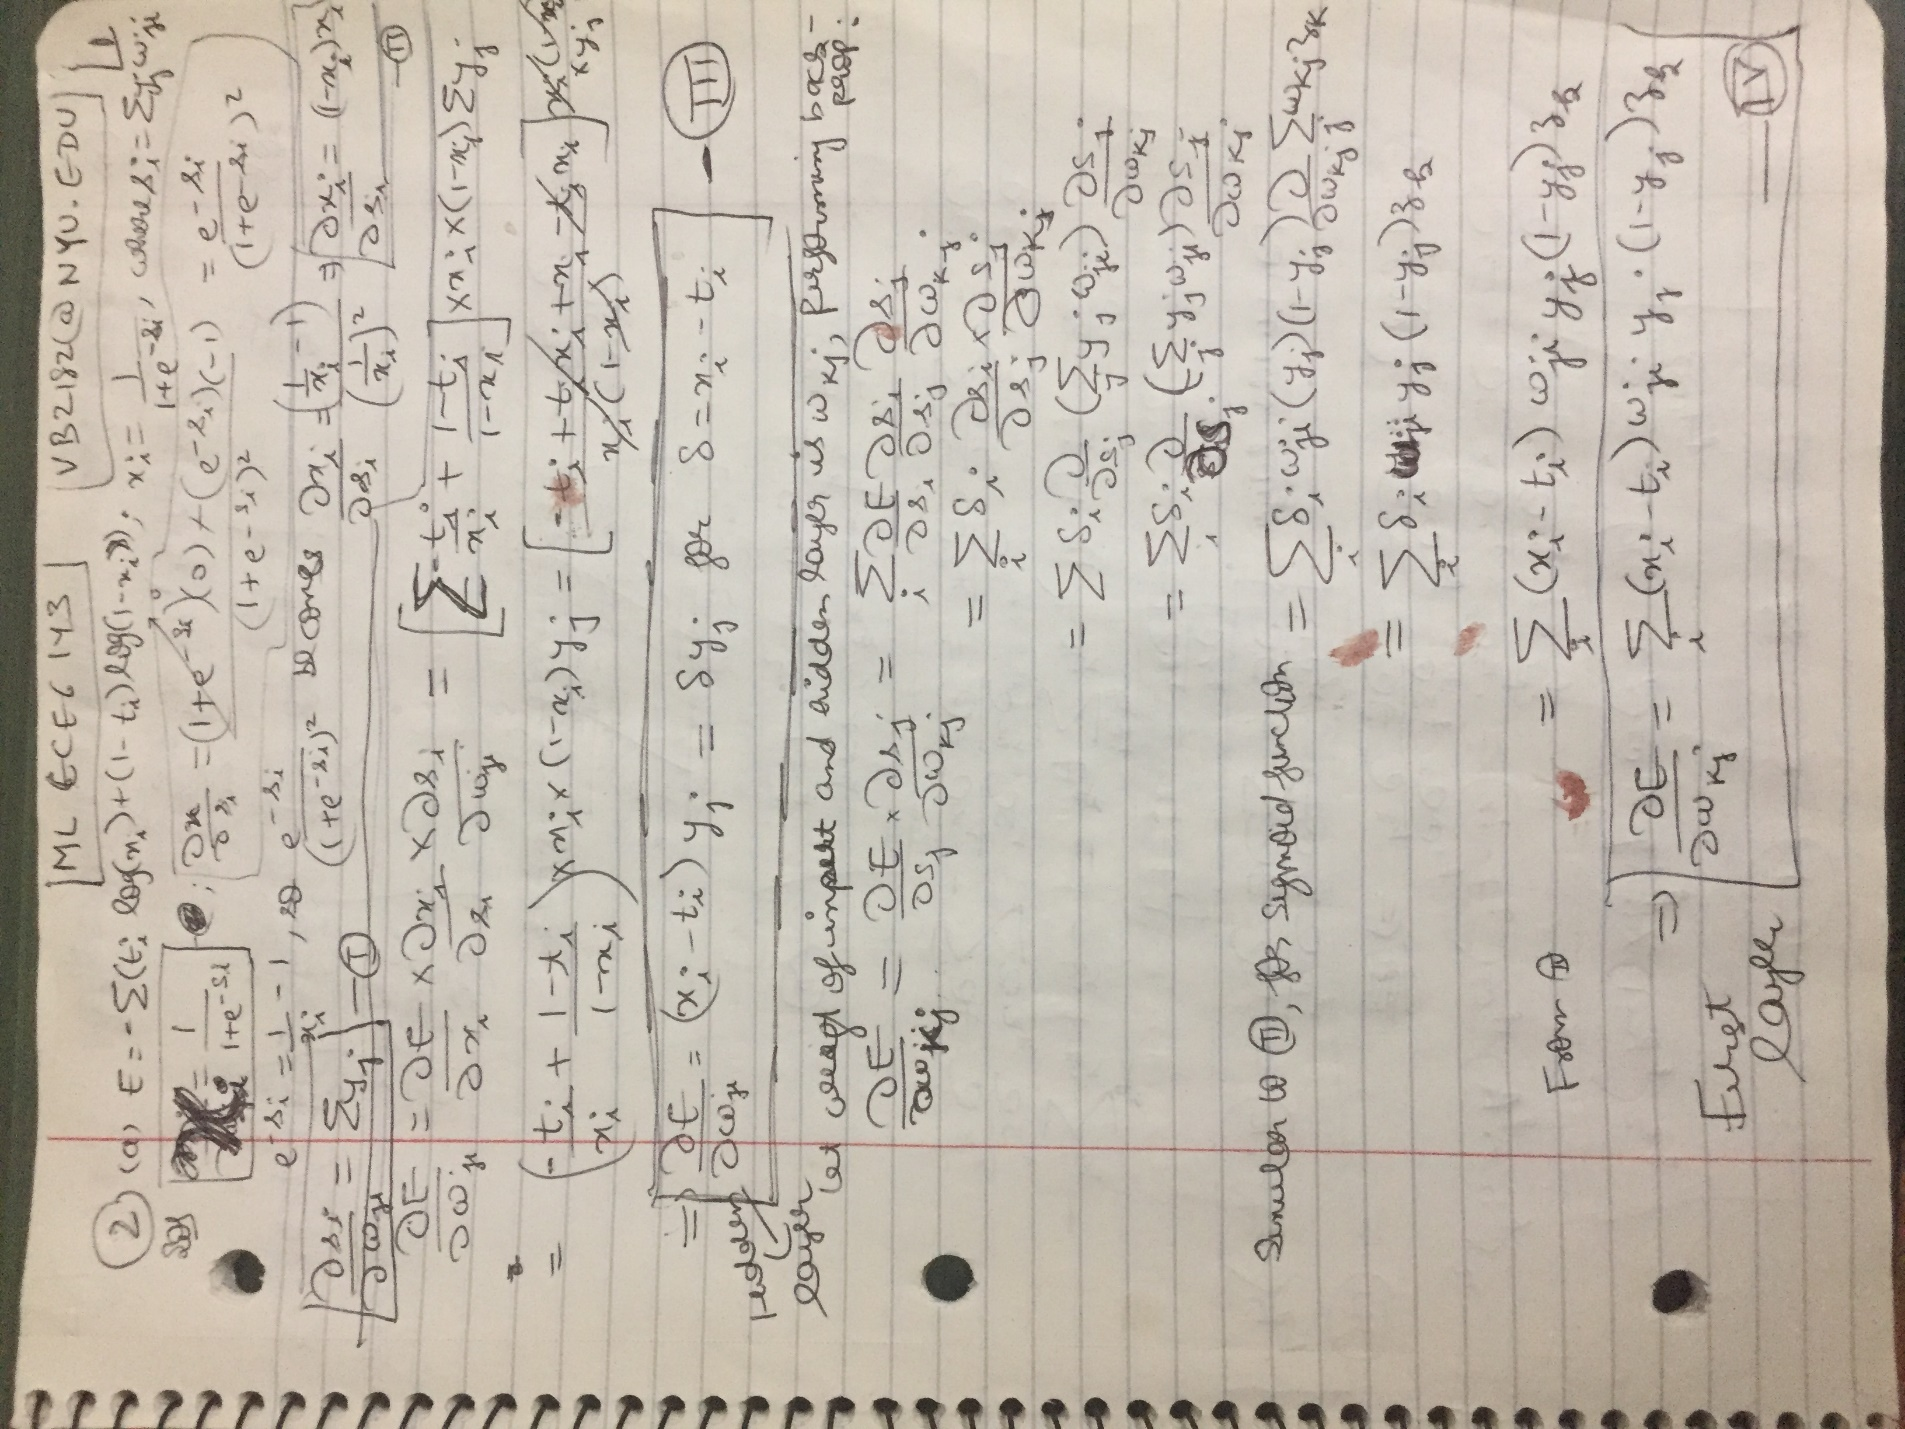 ML ECE 6143 VB2182@NYU.EDU 1
② (a) E = -Σ(t_i log(x_i) + (1-t_i) log(1-x_i)); x_i = 1/(1+e^{-s_i}), where s_i = Σ y_j w_ji
Sol = 1/(1+e^{-s_i}); ∂x/∂s_i = ((1+e^{-s_i})(0) + (e^{-s_i})(-1))/(1+e^{-s_i})^2 = e^{-s_i}/(1+e^{-s_i})^2
e^{-s_i} = 1/x_i - 1, so e^{-s_i}/(1+e^{-s_i})^2 becomes ∂x_i/∂s_i = (1/x_i - 1)/(1/x_i)^2 ⇒ ∂x_i/∂s_i = (1-x_i)x_i - Ⅱ
∂s_i/∂w_ji = Σ y_j - Ⅰ
∂E/∂w_ji = ∂E/∂x_i × ∂x_i/∂s_i × ∂s_i/∂w_ji = [Σ -t_i/x_i + (1-t_i)/(1-x_i)] × x_i × (1-x_i) Σ y_j
= (-t_i/x_i + (1-t_i)/(1-x_i)) × x_i × (1-x_i) y_j = [(-t_i + t_i x_i + x_i - t_i x_i)/(x_i(1-x_i))] x_i(1-x_i) × y_j
⇒ ∂E/∂w_ji = (x_i - t_i) y_j = δ y_j for δ = x_i - t_i - Ⅲ
Hidden layer
Let weight of input and hidden layer is w_kj, performing back-prop.
∂E/∂w_kj = ∂E/∂s_j × ∂s_j/∂w_kj = Σ_i ∂E/∂s_i ∂s_i/∂s_j ∂s_j/∂w_kj
= Σ_i δ_i ∂s_i/∂s_j × ∂s_j/∂w_kj
= Σ δ_i ∂/∂s_j (Σ_j y_j w_ji) ∂s_j/∂w_kj
= Σ_i δ_i ∂/∂s_j (Σ_j y_j w_ji) ∂s_j/∂w_kj
Similar to Ⅱ, for sigmoid function = Σ_i δ_i w_ji (y_j)(1-y_j) ∂/∂w_kj Σ w_kj z_k
= Σ_i δ_i w_ji y_j (1-y_j) z_k
From = Σ_i (x_i - t_i) w_ji y_j (1-y_j) z_k
⇒ ∂E/∂w_kj = Σ_i (x_i - t_i) w_ji y_j . (1-y_j) z_k
First layer — Ⅳ